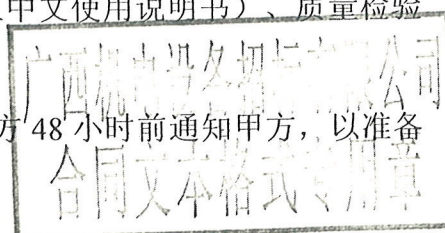 中文使用说明书）、质量检验
广西机电设备招标有限公司
方 48 小时前通知甲方，以准备
合同文本格式专用章